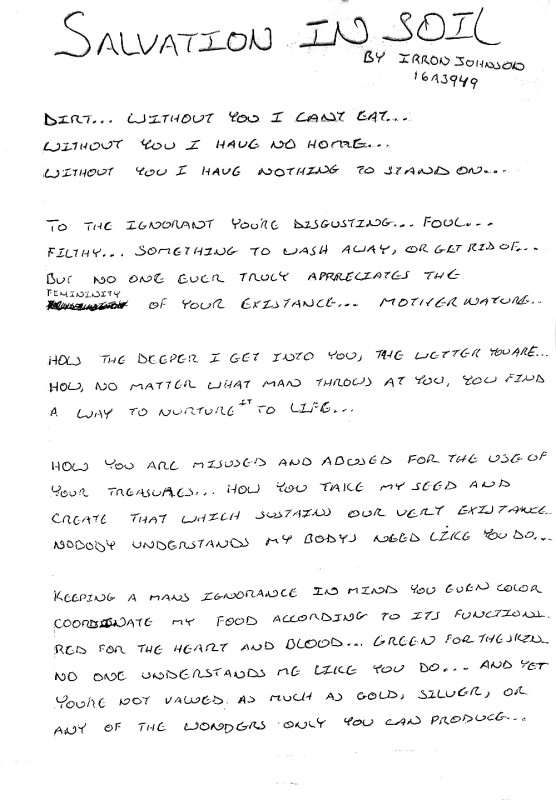 SALVATION IN SOIL
BY IRRON JOHNSON
16A3949
DIRT... WITHOUT YOU I CANT EAT...
WITHOUT YOU I HAVE NO HOME...
WITHOUT YOU I HAVE NOTHING TO STAND ON...
TO THE IGNORANT YOU'RE DISGUSTING... FOUL...
FILTHY... SOMETHING TO WASH AWAY, OR GET RID OF...
BUT NO ONE EVER TRULY APPRECIATES THE
FEMININITY
OF YOUR EXISTANCE... MOTHER NATURE...
HOW THE DEEPER I GET INTO YOU, THE WETTER YOU ARE...
HOW, NO MATTER WHAT MAN THROWS AT YOU, YOU FIND
A WAY TO NURTURE IT TO LIFE...
HOW YOU ARE MISUSED AND ABUSED FOR THE USE OF
YOUR TREASURES... HOW YOU TAKE MY SEED AND
CREATE THAT WHICH SUSTAINS OUR VERY EXISTANCE
NOBODY UNDERSTANDS MY BODYS NEED LIKE YOU DO...
KEEPING A MANS IGNORANCE IN MIND YOU EVEN COLOR
COORDINATE MY FOOD ACCORDING TO ITS FUNCTIONS.
RED FOR THE HEART AND BLOOD... GREEN FOR THE SKIN..
NO ONE UNDERSTANDS ME LIKE YOU DO... AND YET
YOU'RE NOT VALUED AS MUCH AS GOLD, SILVER, OR
ANY OF THE WONDERS ONLY YOU CAN PRODUCE...